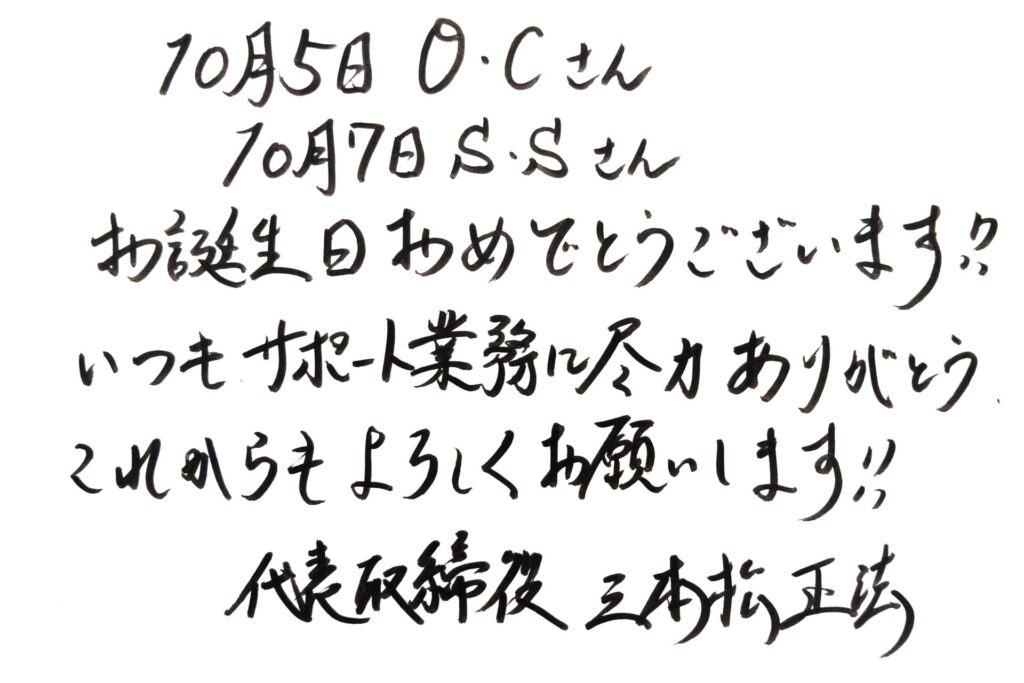 10月5日 O・Cさん
10月7日 S・Sさん
お誕生日おめでとうございます!!
いつもサポート業務に尽力ありがとう
これからもよろしくお願いします!!
代表取締役 三本松 正法